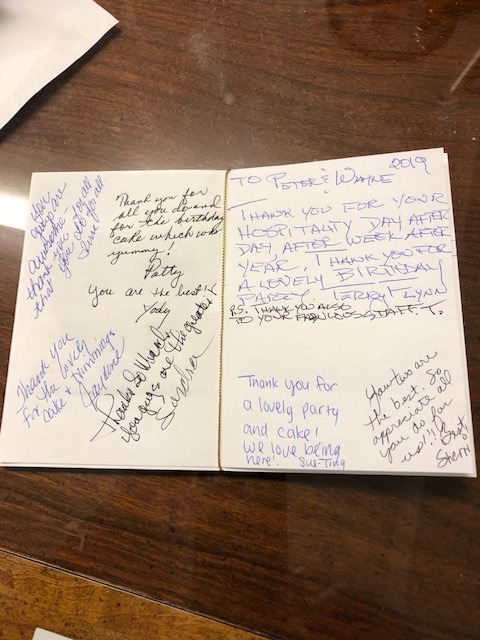 You
guys are
awesome -
thank you
that you do for all
Thank you for
all you do and
for the birthday
cake which was
yummy!
Patty
You are the best!
Thank You
For the lovely
cake + trimmings
Thanks so much
you guys are the greatest
Sandra
2019
TO PETER & WAYNE
THANK YOU FOR YOUR
HOSPITALITY DAY AFTER
DAY, AFTER WEEK AFTER
YEAR. I THANK YOU FOR
A LOVELY BIRTHDAY
PARTY TERRY FLYNN
P.S. THANK YOU ALSO
TO YOUR FABULOUS STAFF. T.
Thank you for
a lovely party
and cake!
We love being
here! Sue-Ting
You two are
the best. So
appreciate all
you do for
us!!!
Sherri